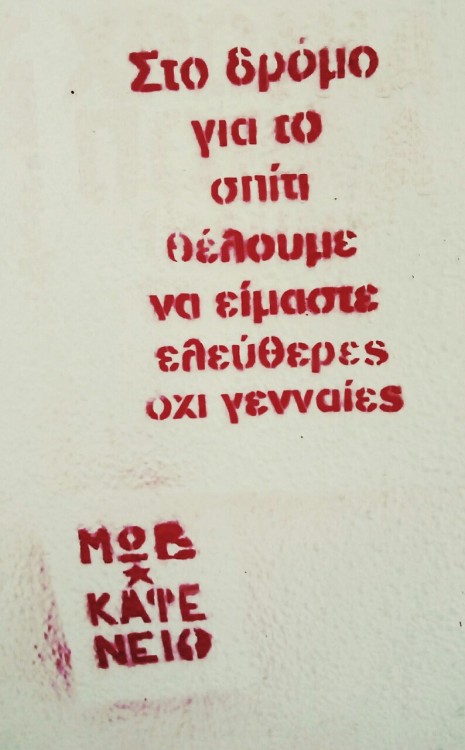 Στο δρόμο
για το
σπίτι
θέλουμε
να είμαστε
ελεύθερες
οχι γενναίες
ΜΟΒ
ΚΑΦΕ
ΝΕΙΟ